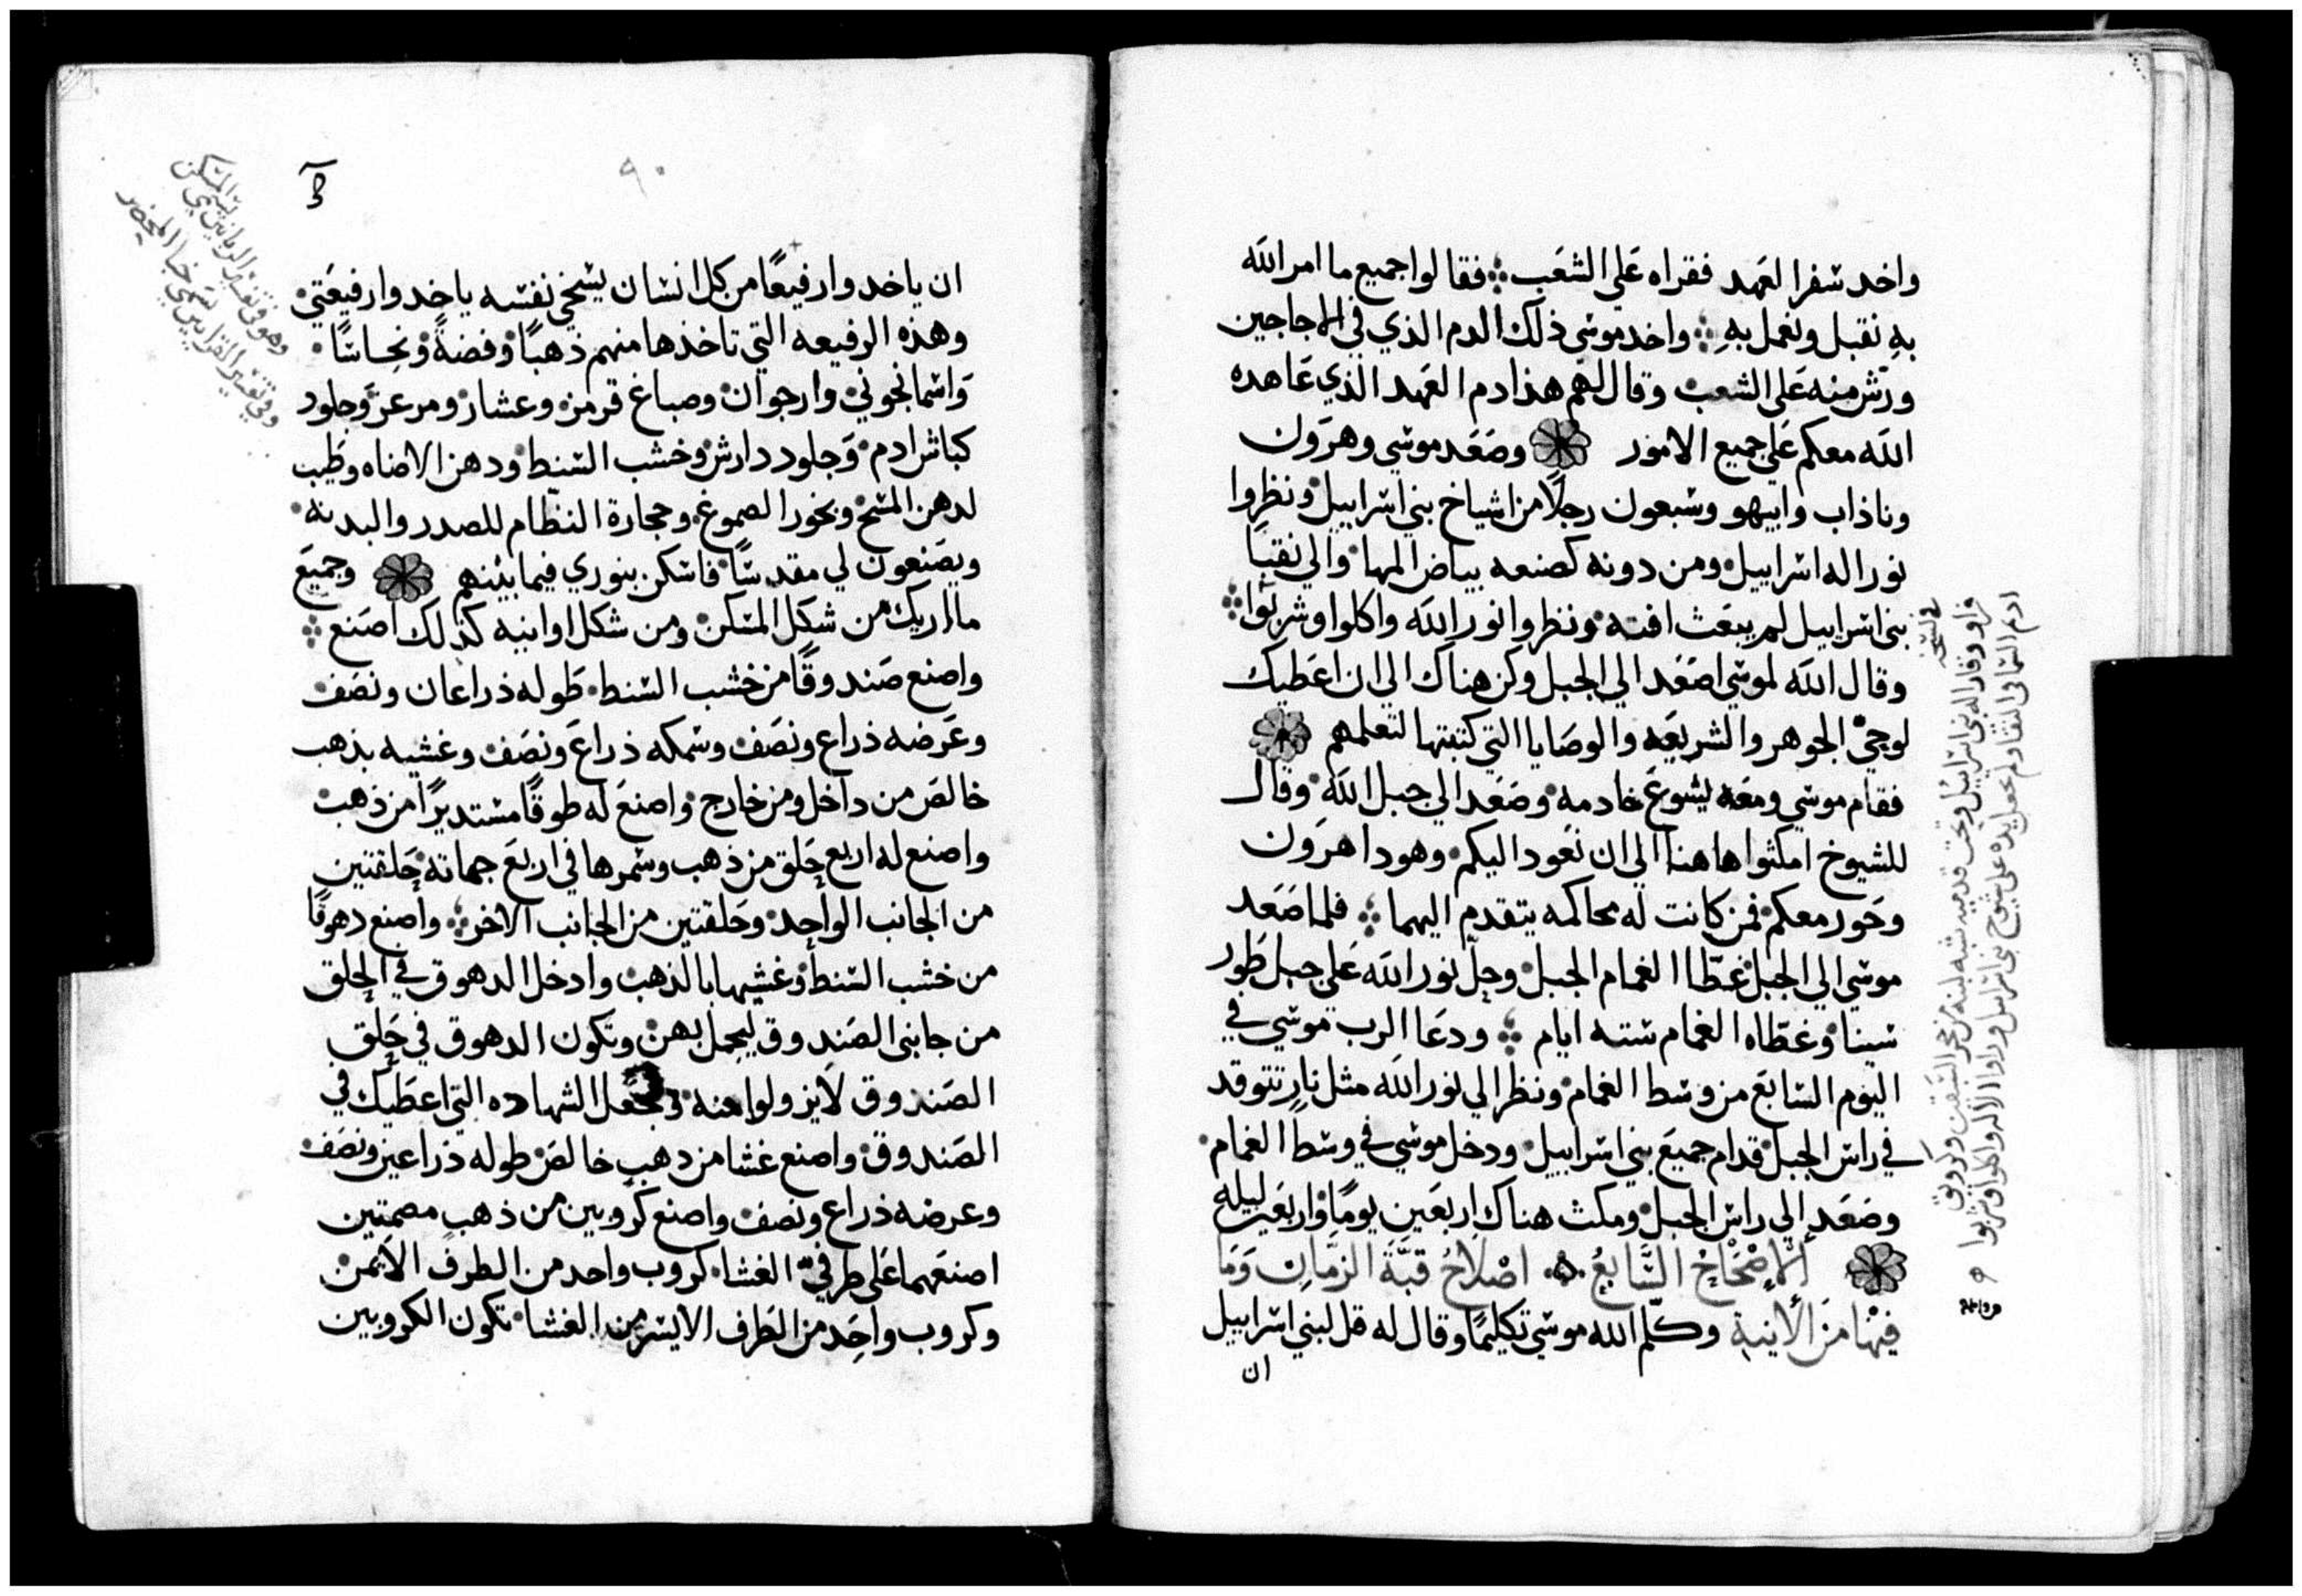 واخد سفر العهد فقراه على الشعب فقالوا جميع ما امر الله
به نقبل ونعمل به واخد موسى ذلك الدم الذي في الاجاجين
ورش منه على الشعب وقال لهم هذا دم العهد الذي عاهده
الله معكم على جميع الامور وصعد موسى وهرون
وناداب وابيهو وسبعون رجلاً من اشياخ بني اسراييل ونظروا
نور اله اسراييل ومن دونه كصنعه بياض المها والي نقبا
بني اسراييل لم يبعث افته ونظروا نور الله واكلوا وشربوا
وقال الله لموسى اصعد الي الجبل وكن هناك الي ان اعطيك
لوحي الجوهر والشريعه والوصايا التي كتبتها لتعلمهم
فقام موسى ومعه يشوع خادمه وصعد الي جبل الله وقال
للشيوخ امكثوا هاهنا الي ان نعود اليكم وهودا هرون
وحور معكم فمن كانت له محاكمه يتقدم اليهما فلما صعد
موسى الي الجبل غطا الغمام الجبل وحل نور الله على جبل طور
سينا وغطاه الغمام سته ايام ودعا الرب موسى في
اليوم السابع من وسط الغمام ونظر الي نور الله مثل نار تتوقد
في راس الجبل قدام جميع بني اسراييل ودخل موسى في وسط الغمام
وصعد الي راس الجبل ومكث هناك اربعين يوماً واربعين ليله
الاصحاح السابع اصلاح قبة الزمان وما
فيها من الانية وكلم الله موسى تكليماً وقال له قل لبني اسراييل
ان
في نسخه
فراو وقار اله بني اسراييل وتحت قدميه شبه لبنه من حجر
٩٠
ان ياخدوا رفيعاً من كل انسان يسخي نفسه ياخدوا رفيعتي
وهذه الرفيعه التي تاخذها منهم ذهباً وفضةً ونحاساً
واسمانجوني وارجوان وصباغ قرمز وعشار ومرعز وجلود
كباش ادم وجلود دارش وخشب السنط ودهن الاضاه وطيب
لدهن المسح وبخور الصموغ وحجارة النظام للصدر والبدنه
ويصنعون لي مقدساً فاسكن بنوري فيما بينهم وجميع
ما اريك من شكل المسكن ومن شكل اوانيه كذلك اصنع
واصنع صندوقاً من خشب السنط طوله ذراعان ونصف
وعرضه ذراع ونصف وسمكه ذراع ونصف وغشيه بذهب
خالص من داخل ومن خارج واصنع له طوقاً مستديراً من ذهب
واصنع له اربع حلق من ذهب وسمرها في اربع جهاته حلقتين
من الجانب الواحد وحلقتين من الجانب الاخر واصنع دهوقاً
من خشب السنط وغشيها بالذهب وادخل الدهوق في الحلق
من جانبي الصندوق ليحمل بهن وتكون الدهوق في حلق
الصندوق لا يزولوا منه وتجعل الشهاده التي اعطيك في
الصندوق واصنع غشا من دهب خالص طوله ذراعين ونصف
وعرضه ذراع ونصف واصنع كروبين من ذهب مصمتين
اصنعهما على طرفي الغشا كروب واحد من الطرف الايمن
وكروب واحد من الطرف الايسر من الغشا تكون الكروبين